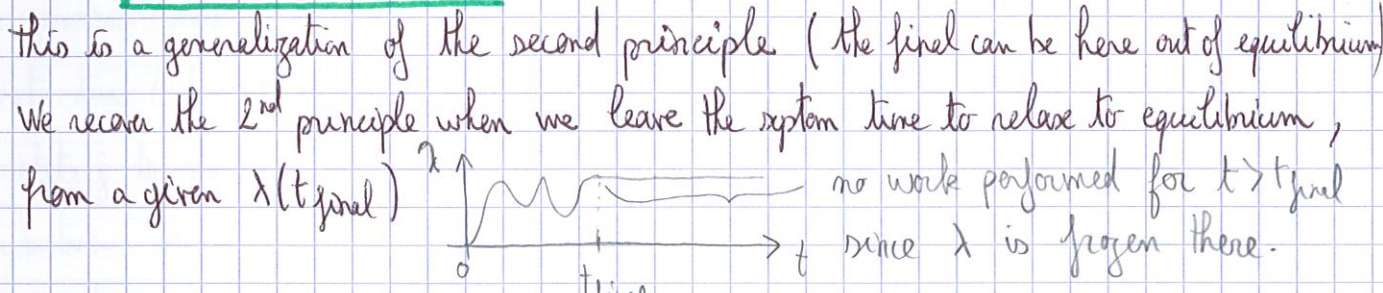 this is a generalization of the second principle (the final can be here out of equilibrium)
We recover the 2nd principle when we leave the system time to relax to equilibrium,
from a given λ(t final)
λ
no work performed for t > t final
0
t
since λ is frozen there.